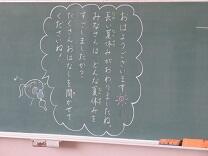 おはようございます
長い夏休みがおわりましたね。
みなさんは、どんな夏休みを
すごしましたか？
たくさんおはなしを聞かせて
くださいね！